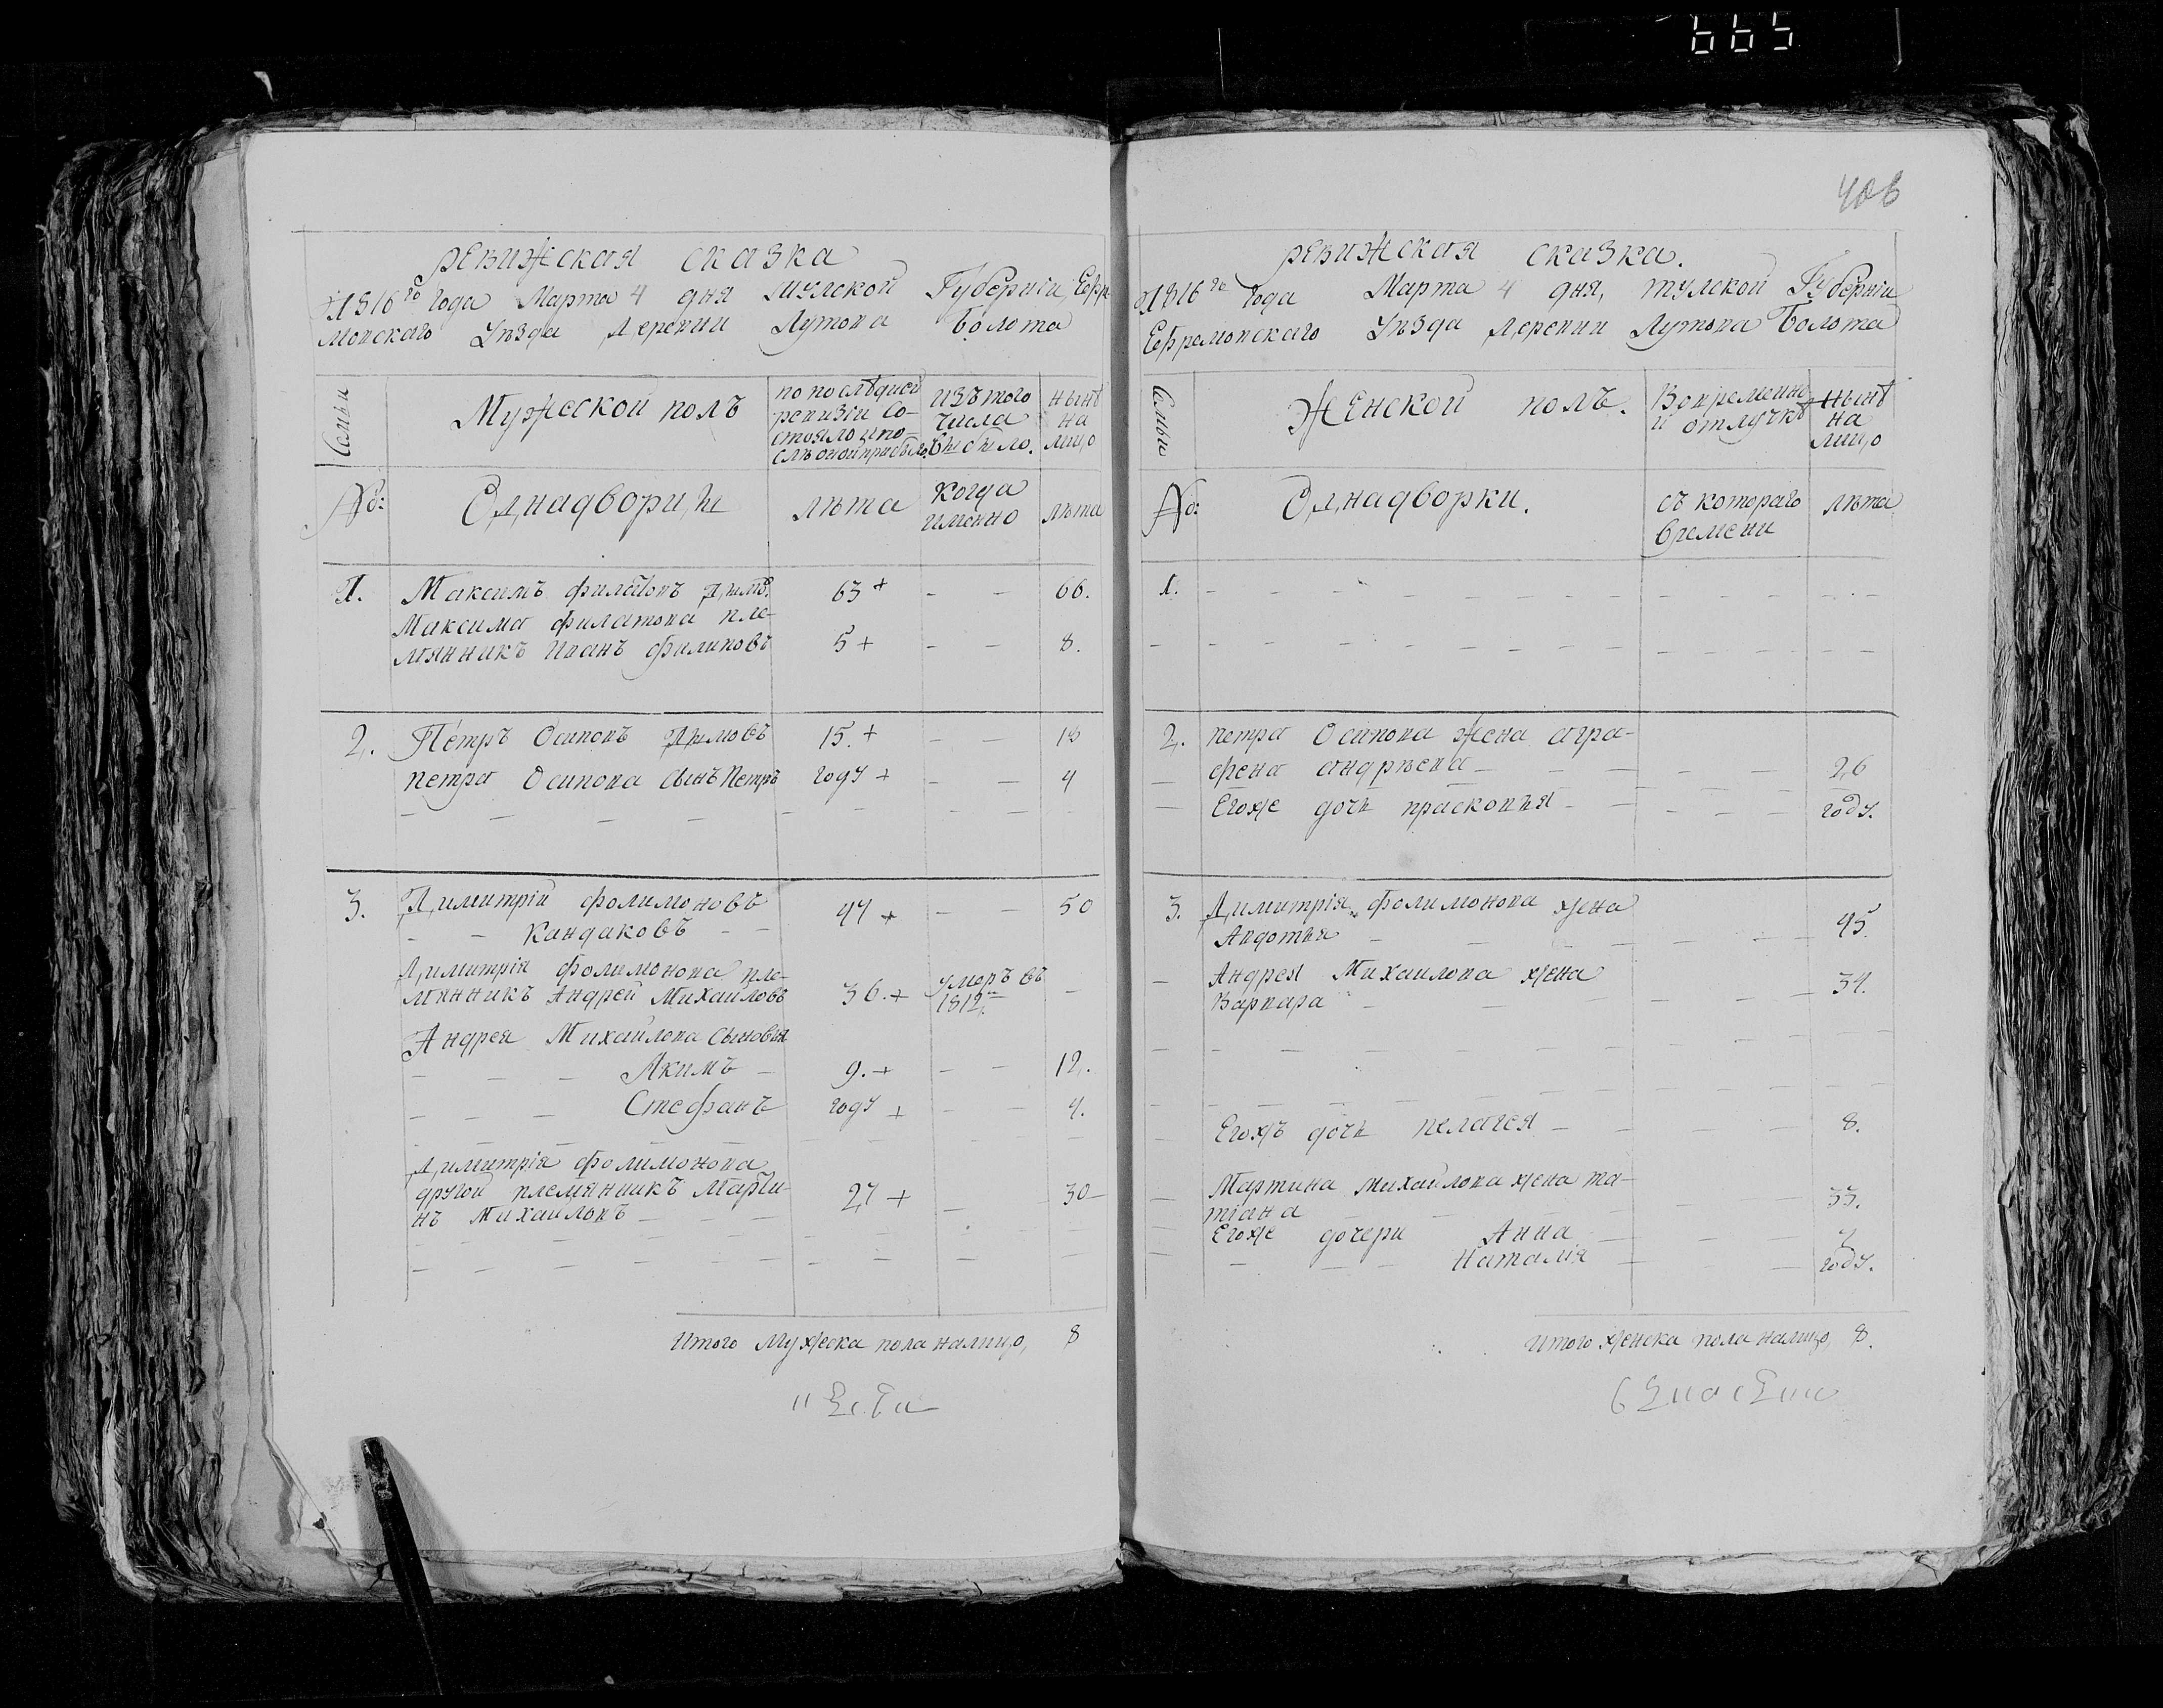 665
406
Ревижская сказка
1816го Года Марта 4 дня Тулской Губерніи Ефре-
мовскаго Уѣзда Деревни Лутова Болота
Семьи
Мужеской полъ
по послѣдней
ревизіи со-
стояло и по-
слѣ оной прибыло.
изъ того
числа
выбыло.
нынѣ
на
лицо
№:
Однадворцы
лѣта
когда
имянно
лѣта
1.
Максимъ Филатовъ
63 +
- -
66.
Максима Филатова пле-
мянникъ Иванъ Филиповъ
5 +
- -
8.
2.
Петръ Осиповъ Дымовъ
15. +
- -
18
Петра Осипова сынъ Петръ
году +
- -
4
3.
Димитрій Фолимоновъ
Кандаковъ
47 +
- -
50
Димитрія Фолимонова пле-
мянникъ Андрей Михайловъ
36. +
умеръ въ
1812м.
-
Андрея Михайлова сыновья
Акимъ
9. +
- -
12.
Стефанъ
году +
- -
4.
Димитрія Фолимонова
другой племянникъ Марти-
нъ Михайловъ
27 +
-
30
Итого Мужеска пола налицо, 8
Ревижская сказка.
1816го Года Марта 4 дня, Тулской Губерніи
Ефремовскаго Уѣзда деревни Лутова Болота
Семьи
Женской полъ.
Во временно
й отлучкѣ
нынѣ
на
лицо
№:
Однадворки.
съ котораго
времени
лѣта
1.
2.
Петра Осипова жена Агра-
фена Андрѣева
26
Егоже дочь Прасковья
году.
3.
Димитрія Фолимонова жена
Авдотья
45.
Андрея Михайлова жена
Варвара
34.
Егожъ дочь Пелагея
8.
Мартина Михайлова жена Та-
тіана
33.
Егоже дочери Анна
4
Наталія
году.
Итого женска пола налицо, 8.